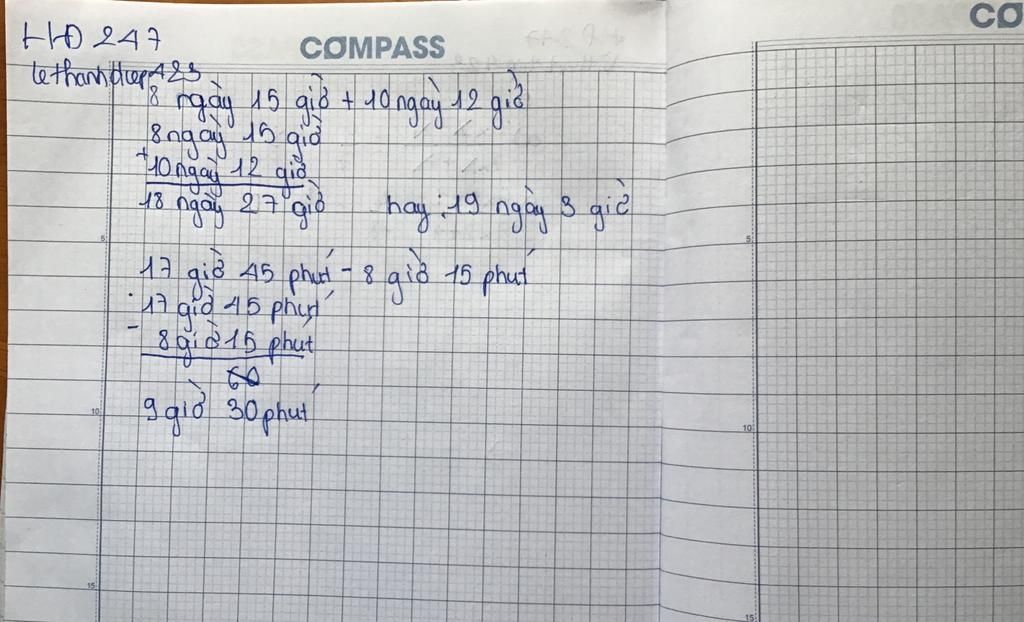 HĐ 247
COMPASS
CO
lethanhdiep423
8 ngày 15 giờ + 10 ngày 12 giờ
8 ngày 15 giờ
+
10 ngày 12 giờ
18 ngày 27 giờ hay: 19 ngày 3 giờ
5
5
17 giờ 45 phút - 8 giờ 15 phút
17 giờ 45 phút
-
8 giờ 15 phút
9 giờ 30 phút
10
10
15
15